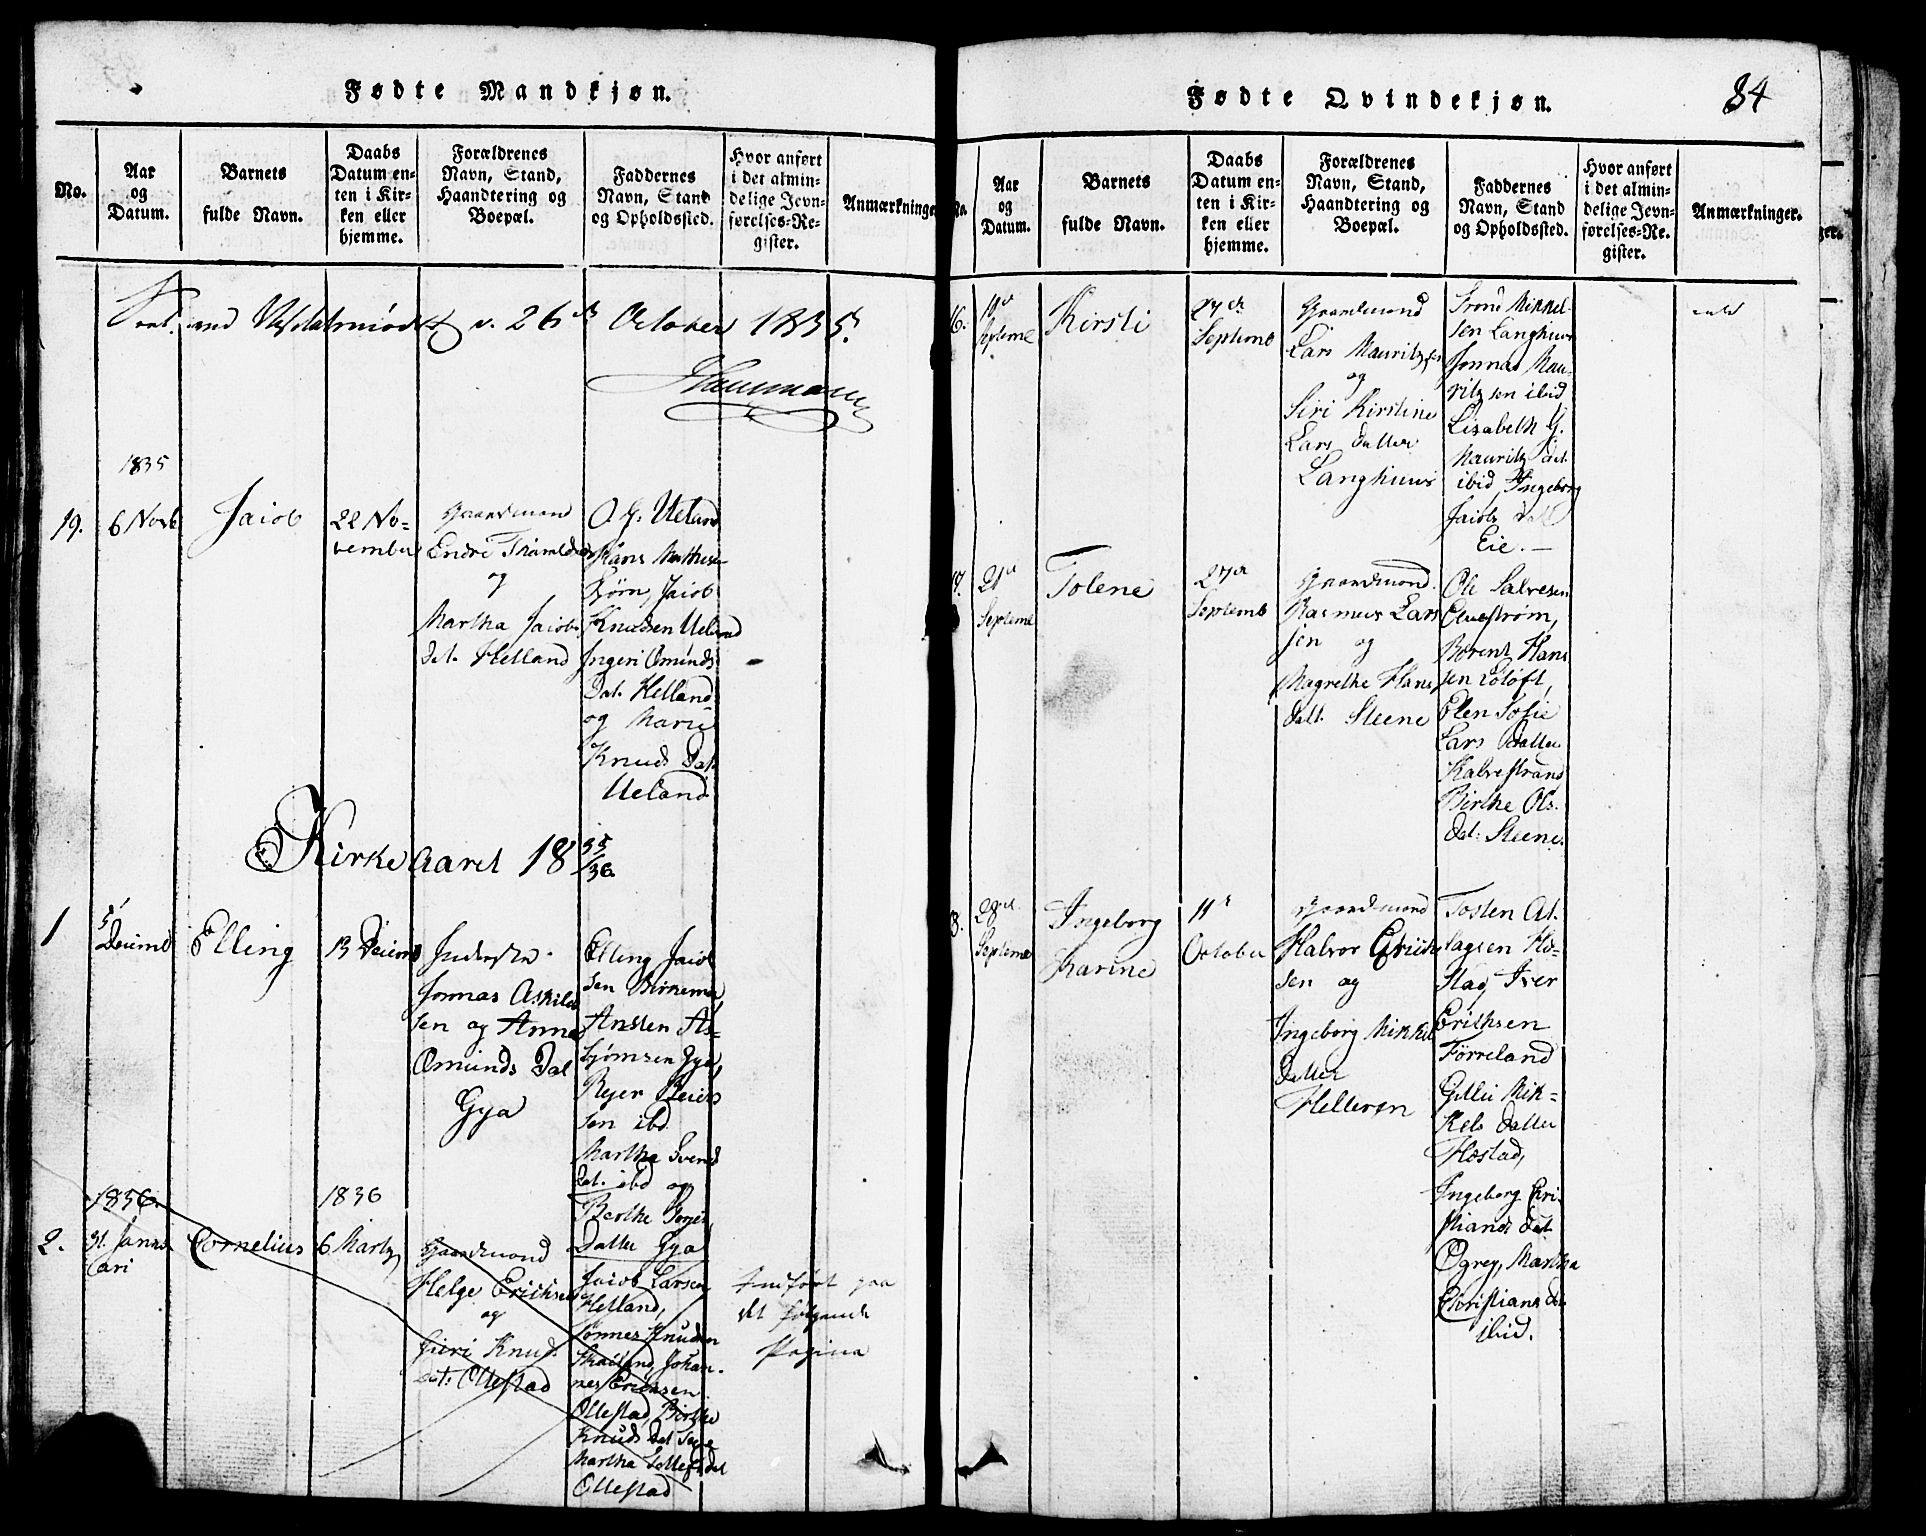 Fødte Mandkjøn.
No.
Aar
og
Datum.
Barnets
fulde Navn.
Daabs
Datum en-
ten i Kir-
ken eller
hjemme.
Forældrenes
Navn, Stand,
Haandtering og
Boepæl.
Faddernes
Navn, Stand
og Opholdssted.
Hvor anført
i det almin-
delige Jevn-
førelses-Re-
gister.
Anmærkninger
26 October 1835.
1835
19.
6 Novb
Jacob
22 No-
vember
Gaardmand
Endre
og
Martha Jacobs
dat. Helland
Ueland
Hans
Jacob
Knudsen Ueland
Ingeri Omunds
Dat. Helland
og Marie
Knuds Dat
Ueland
Kirke Aaret 18 35/36.
1
5
Decemb
Elling
13 Decemb
Jonnas
sen og Anne
Omunds Dat
Gya
Elling Jacob
sen Birkemo,
Ansten As-
bjørnsen Gya,
Rejer Reiers
sen ibd
Martha Svends
dat. ibd og
Berthe
Datter Gya
1836
1836
2.
31. Janu
ari
Cornelius
6 Marty
Gaardmand
Helge Erichsen
og
Siri Knud
dat: Ollestad
Jacob Larsen
Helland,
Tønnes Knudsen
Skailand, Johan-
nes Erichsen
Ollestad, Birthe
Knuds Dat
Martha Tollefs dat
Ollestad
Indført paa
det følgende
Pagina
Fødte Qvindekjøn.
84
No.
Aar
og
Datum.
Barnets
fulde Navn.
Daabs
Datum en-
ten i Kir-
ken eller
hjemme.
Forældrenes
Navn, Stand,
Haandtering og
Boepæl.
Faddernes
Navn, Stand
og Opholdssted.
Hvor anført
i det almin-
delige Jevn-
førelses-Re-
gister.
Anmærkninger.
16.
Septemb
Kirsti
27de
Septemb
Gaardmand
Lars Mauritzsen
og
Siri Kirstine
Lars datter
Langhuus
Trond Mikkel-
sen Langhuus
Jonnas Mau-
ritzsen ibid
Lisabeth G.
Mauritz dat.
ibid, Ingeborg
Jacobs datt
Eie.
17.
21de
Septemb
Tolene
27de
Septemb
Gaardmand
Rasmus Lars
sen og
Magrethe Hans
datt. Steene
Ole Salvesen
Berent Hans
sen
Elen Sofie
Lars datter
Kalvestrand
Birthe Ols.
dat: Steene.
18.
28de
Septemb
Ingeborg
Karine
11te
October
Gaardmand
Halvor Erich
sen og
Ingeborg Mikkel
datter
Helleren
Tosten At-
lagsen Hø-
stad, Iver
Erichsen
Førreland
Mik-
kels datter
Høstad,
Ingeborg Chri-
stians dat.
Ogrey, Martha
Christians dat
ibid.